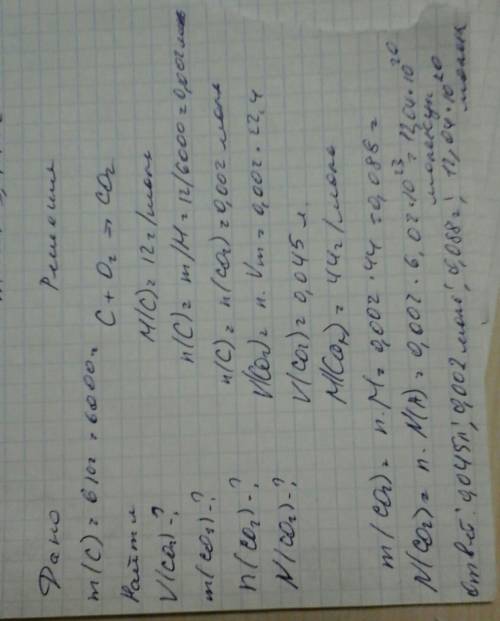 Дано
Решения
m(C) = 610г = 6000г
Найти
V(CO2)-?
m(CO2)-?
n(CO2)-?
N(CO2)-?
C + O2 = CO2
M(C) = 12г/моль
n(C) = m/M = 12/6000 = 0,002моль
n(C) = n(CO2) = 0,002 моль
V(CO2) = n·Vm = 0,002·22,4
V(CO2) = 0,045 л.
M(CO2) = 44г/моль
m(CO2) = n·M = 0,002·44 = 0,088г
N(CO2) = n·N(A) = 0,002·6,02·10²³ = 12,04·10²⁰ молекул
отв-т: 0,045л; 0,002моль; 0,088г; 12,04·10²⁰ молек